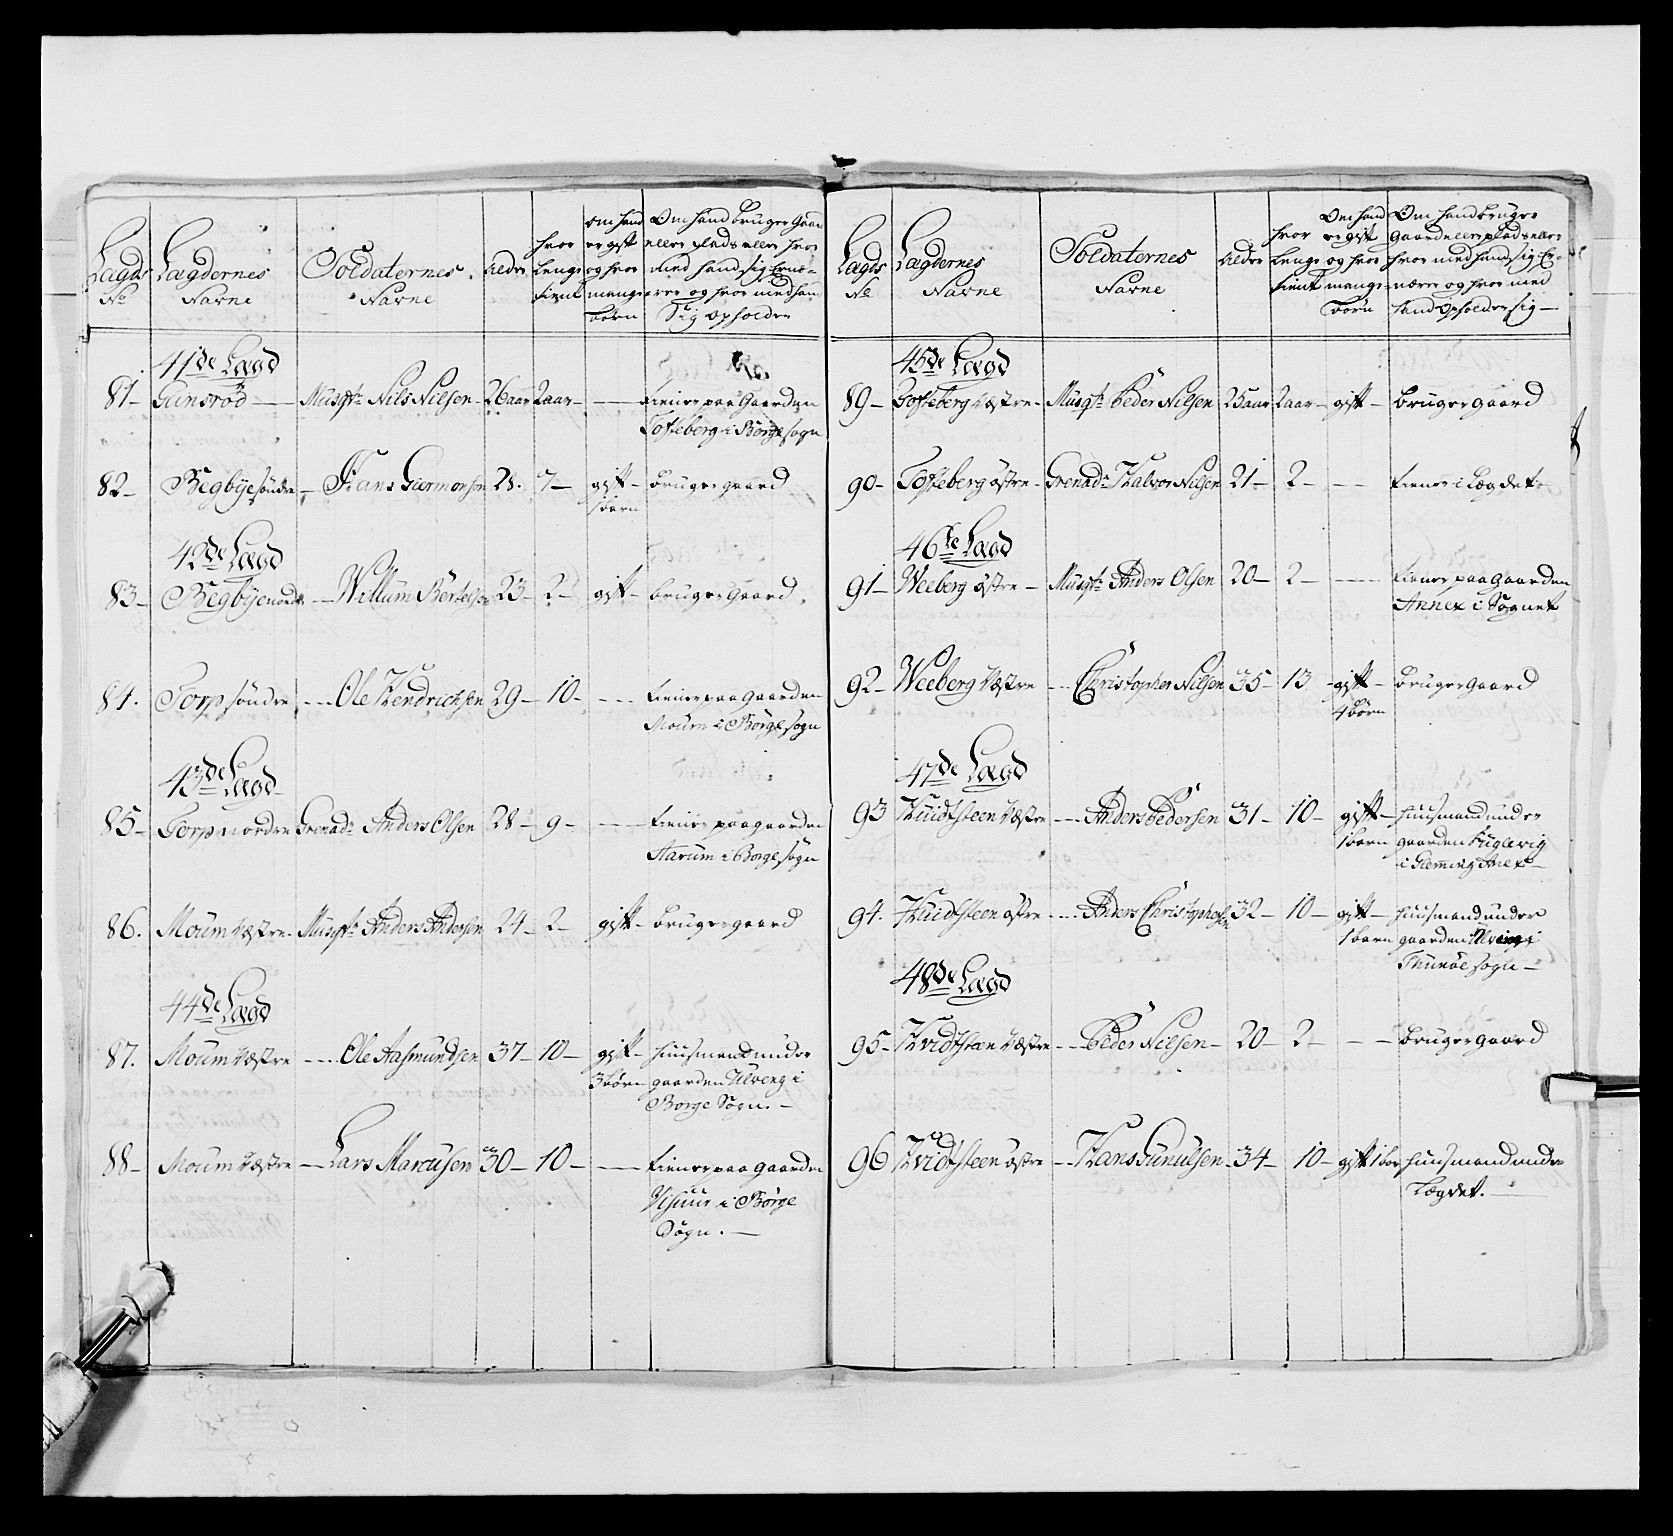 Lægds No
Lægdernes Navne
Soldaternes Navne
Alder
hvor lenge tient
om hand er gift og hvor mange børn
Om hand bruger Gaard eller plads eller hvor med hand sig Ernærer og hvor med hand Sig opholder
41de Lægd
81- Gunsrød — Musqt: Nils Nilsen - 26 aar 2 aar - — tiener paa Gaarden
Tofteberg i Borge sogn
82- Begbye søndre - Hans Giermonsen 28. 7- gift - bruger gaard
1 barn
42de Lægd
83- Begbye nordr - Willum Bertelsen 23- 2- gift - bruger Gaard.
84. Torp søndre - Ole Hendrichsen 29- 10- --- tiener paa Gaarden
Moum i Borge sogn
43de Lægd
85- Torp nordre Grenad: Anders Olsen 28- 9- — tiener paa gaarden
Aarum i Borge sogn
86. Moum Væstre - Musqt: Anders Andersen 24- 2- gift - bruger gaard
44de Lægd
87. Moum Væstre --- Ole Aasmundsen 37- 10- gift - huusmand under
3 børn gaarden Ulveng i
Borge Sogn. -
88- Moum Væstre - Lars Marcusen 30- 10- — tiener paa gaarden
i Borge
Sogn. —
Lægds No
Lægdernes Navne
Soldaternes Navne
Alder
hvor lenge tient
Om hand er gift og hvor mange børn
Om hand bruger Gaard eller plads eller hvor med hand sig Ernærer og hvor med hand Opholder sig —
45de Lægd
89- Tofteberg Væstre - Musqt: Peder Nilsen 25 aar 2 aar - gift - bruger gaard
90- Tofteberg østre - Grenad: Halvor Nilsen 21- 2- --- tiener i Lægdet.
46te Lægd
91- Weeberg østre - Musqt: Anders Olsen 20- 2- ---- tiener paa Gaarden
Annex i Sognet
92- Weeberg Væstre --- Christopher Nilsen 35- 13 - gift - bruger Gaard
4 børn
47de Lægd
93 Huidtsteen Væstre --- Anders Pedersen 31- 10- gift - huusmand under
1 barn gaarden Kuglevig
i Glemmig Anex -
94. Huidtsteen østre --- Anders Christophersen 32- 10- gift - huusmand under
1 barn gaarden
Thunøe sogn -
48de Lægd
95- Hvidtsteen Væstre -- Peder Nielsen - 20- 2- - - bruger gaard
96 Hvidtsteen østre -- Hans Gunulsen - 34- 10- gift 1 bar huusmand under
Lægdet. —